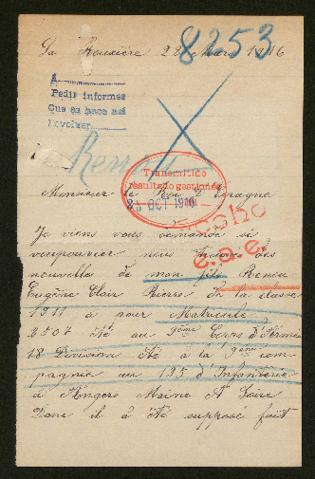 La Rouxière 22 Mars 1916
8253
A
Pedir informes
Que se hace así
Devolver
Renou
Transmitido
resultado gestiones
23 OCT 1916
Monsieur le Roi d'Espagne
Je viens vous demande si
vous pouvez nous des
nouvelles de mon fils Renou
Eugène Clair Pierre de la classe
1911 à pour Matricule
2507 été au 9eme Corps d'Armée
18 Division été à la 9eme com
pagnie au 135 d'Infanterie
à Angers Maine et Loire
Dans il à été supposé fait